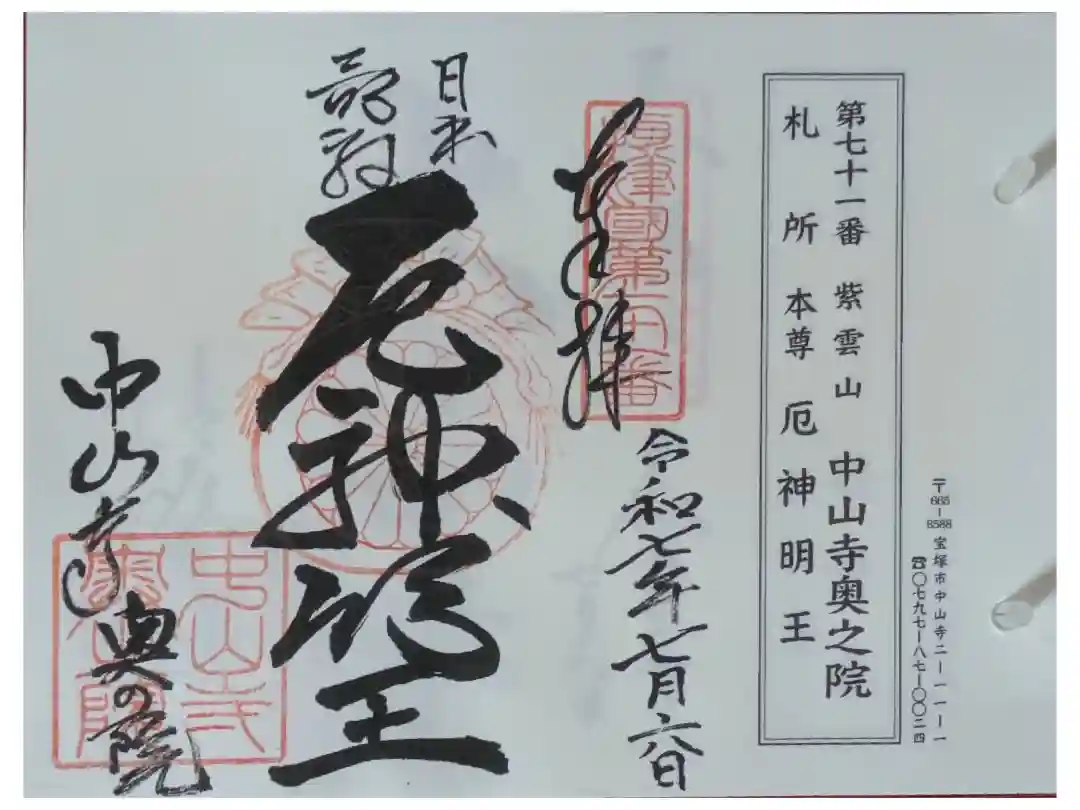 〒665-8588 宝塚市中山寺二-一一-一
☎〇七九七-八七-〇〇二四
第七十一番 紫雲山 中山寺奥之院
札所本尊 厄神明王
奉拝
令和七年七月六日
日本
厄神明王
中山寺
奥の院
中山寺